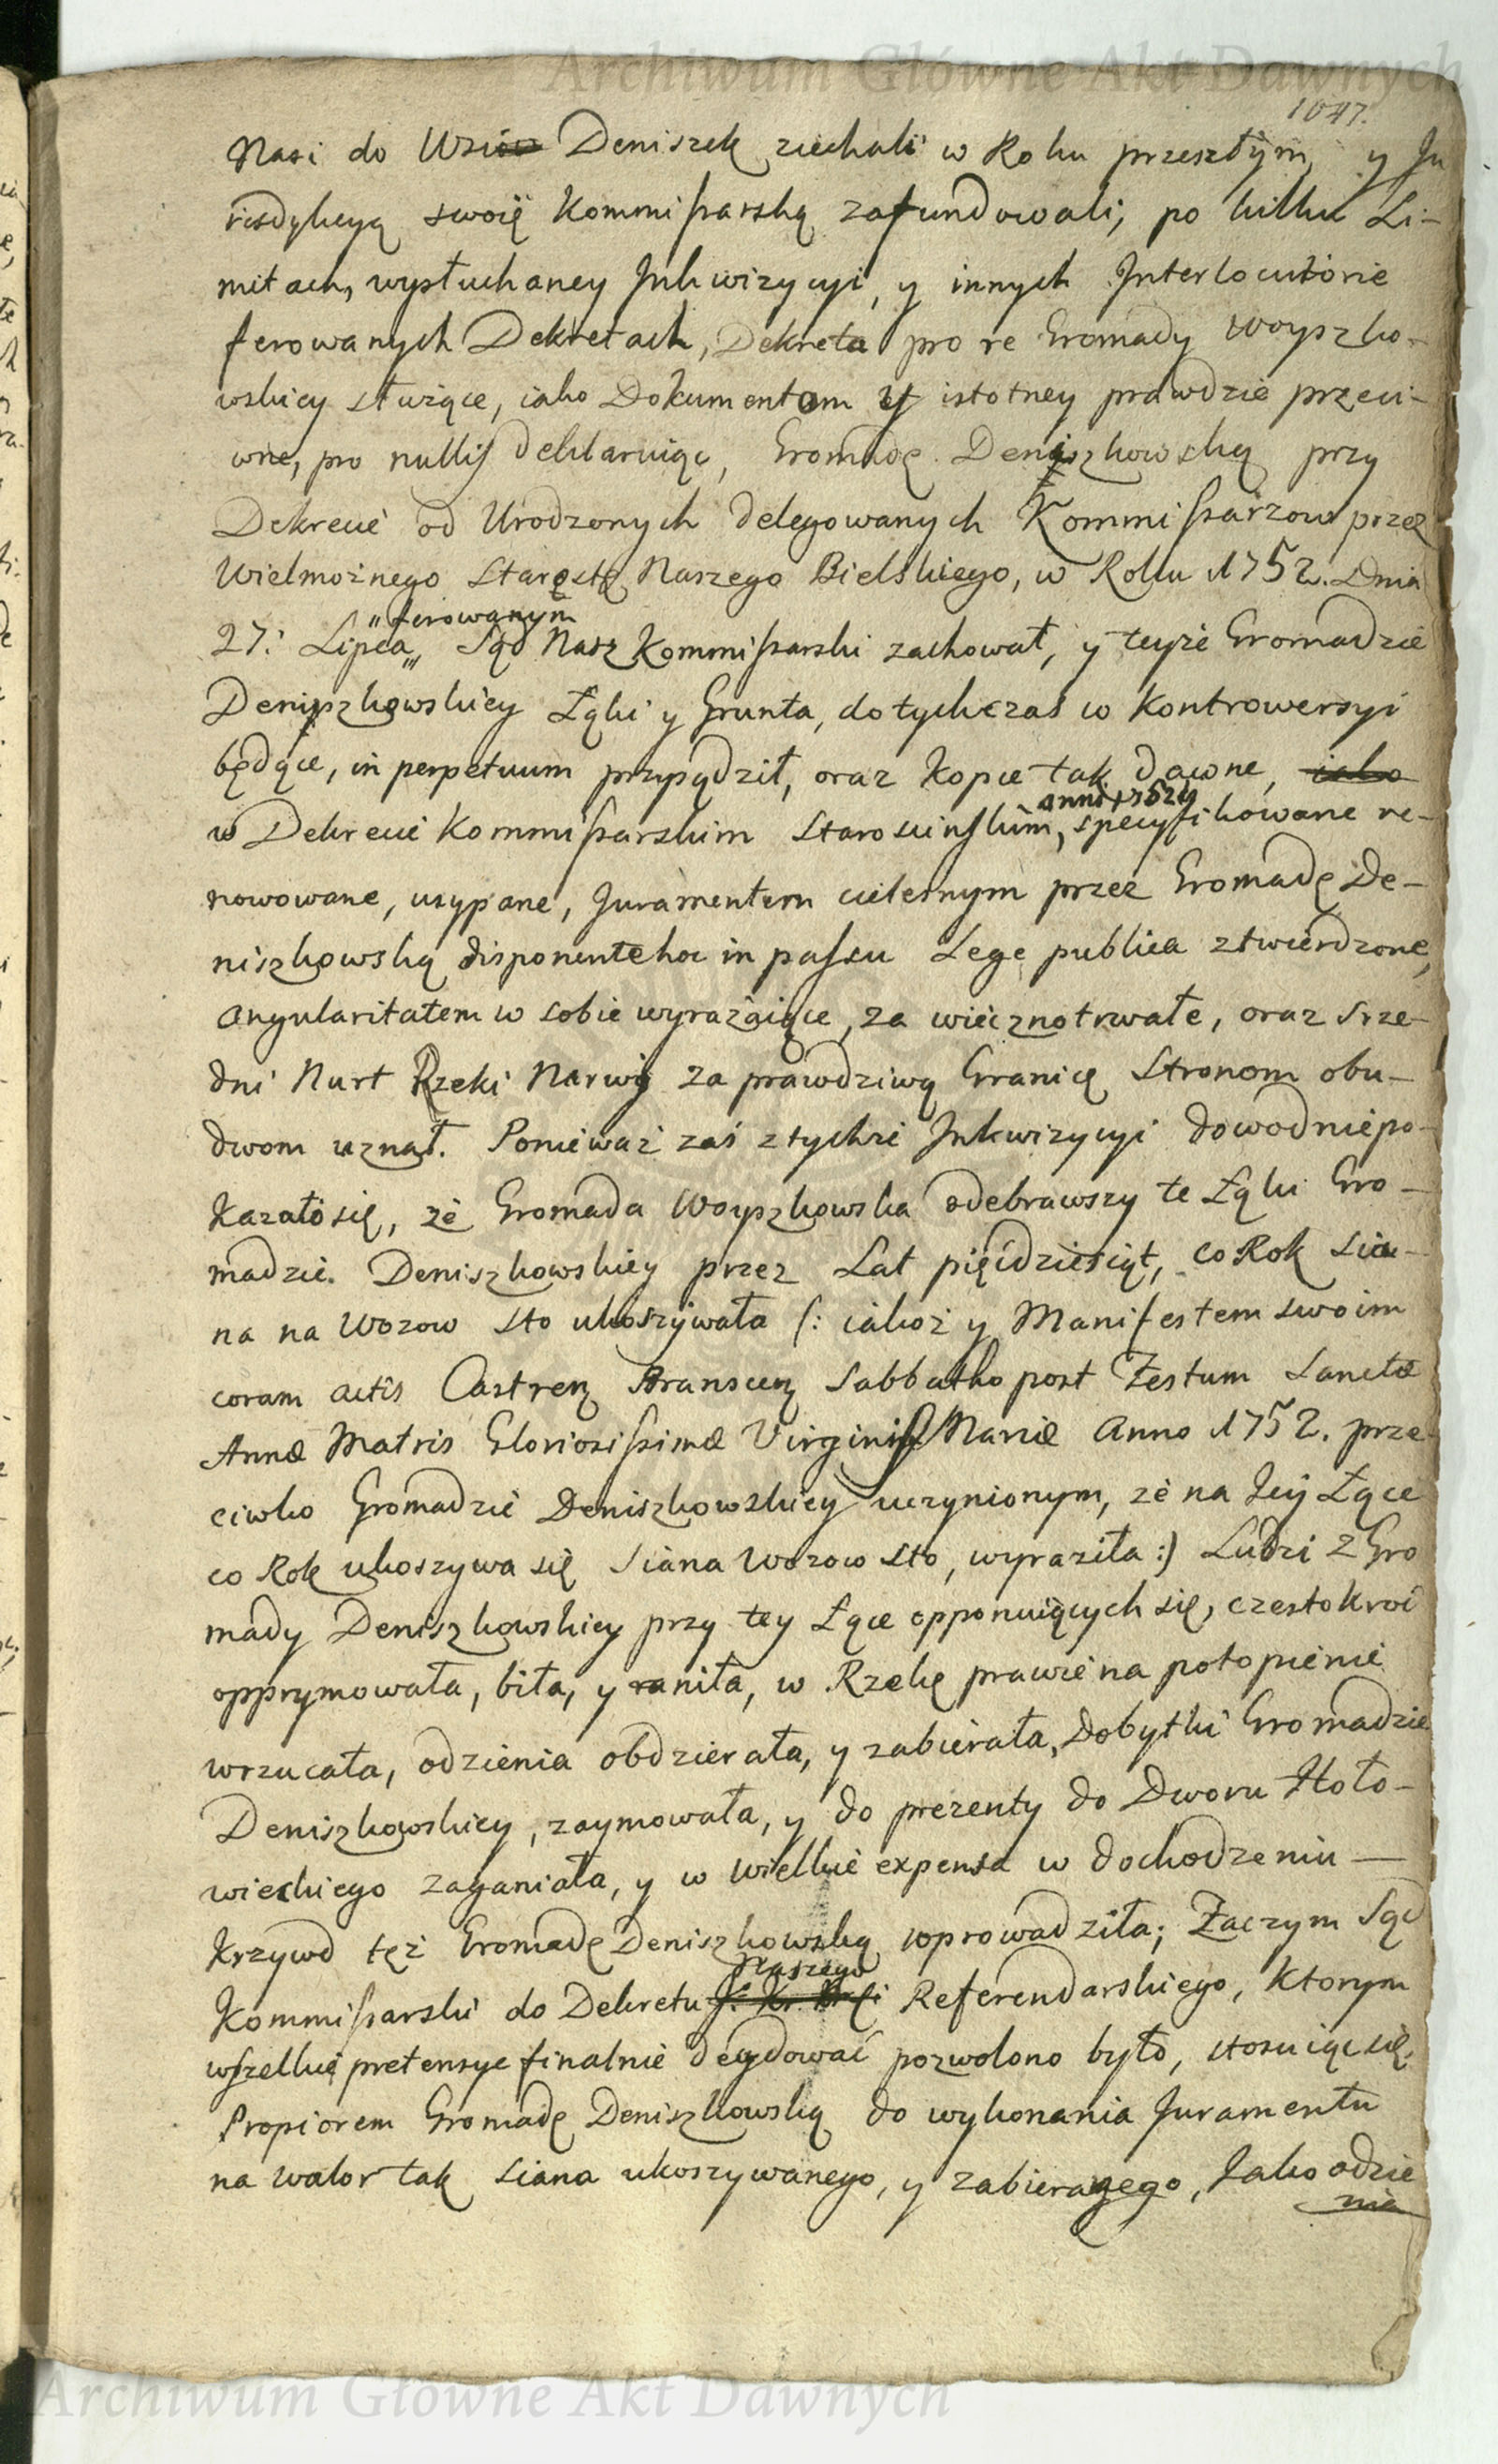 Archiwum Główne Akt Dawnych
1047.
Nasi do Wsiów Deniszek ziechali w Roku przeszłym, y Ju
risdykcyą swoię Kommissarską zafundowali, po kilku Li-
mitach, wysłuchaney Inkwizycyi, y innych Interlocutorie
ferowanych Dekretach, Dekreta pro re Gromady Woyszko-
wskiey służące, iako Dokumentom y istotney prawdzie przeci-
wne, pro nullis deklaruiąc, Gromadę Deniszkowską przy
Dekrecie od Urodzonych delegowanych Kommissarzow przez
Wielmożnego Starostę Naszego Bielskiego, w Roku 1752. Dnia
ferowanym
27. Lipca, Sąd Nasz Kommissarski zachował, y teyże Gromadzie
Deniszkowskiey Łąki y Grunta, dotychczas w Kontrowersyi
będące, in perpetuum przysądził, oraz Kopce tak dawne, iako
anni 1752
w Dekrecie Kommissarskim Staroscinskim, specyfikowane re-
nowowane, usypane, Juramentem cielesnym przez Gromadę De-
niszkowską disponente hoc in passu Lege publica ztwierdzone,
angularitatem w sobie wyrażaiące, za wiecznotrwałe, oraz Srze-
dni Nurt Rzeki Narwi za prawdziwą Granicę Stronom obu-
dwom uznał. Ponieważ zaś z tychże Inkwizycyi dowodnie po-
kazało się, że Gromada Woyszkowska odebrawszy te Łąki Gro-
madzie Deniszkowskiey przez Lat pięćdziesiąt, co Rok Sia-
na na Wozow Sto ukoszywała (: iakoż y Manifestem swoim
coram actis Castren Branscen Sabbatho post Festum Sanctæ
Annæ Matris Gloriosissimæ Virginis Mariæ Anno 1752. prze-
ciwko Gromadzie Deniszkowskiey uczynionym, że na Jey Łące
co Rok ukoszywa się Siana Wozow Sto, wyraziła :) Ludzi z Gro
mady Deniszkowskiey przy tey Łące opponuiących się, częstokroć
opprymowała, biła, y raniła, w Rzekę prawie na potopienie
wrzucała, odzienia obdzierała, y zabierała, Dobytki Gromadzie
Deniszkowskiey, zaymowała, y do prezenty do Dworu Hoło-
wieskiego zaganiała, y w wielkie expensa w dochodzeniu —
Krzywd też Gromadę Deniszkowską wprowadziła; Zaczym Sąd
Naszego
Kommissarski do Dekretu J. Kr. Mści Referendarskiego, Ktorym
wszelkie pretensye finalnie decydować pozwolono było, stosuiąc się,
Propiorem Gromadę Deniszkowską do wykonania Juramentu
na walor tak Siana ukoszywanego, y zabieranego, Jako odzie
nia
Archiwum Główne Akt Dawnych